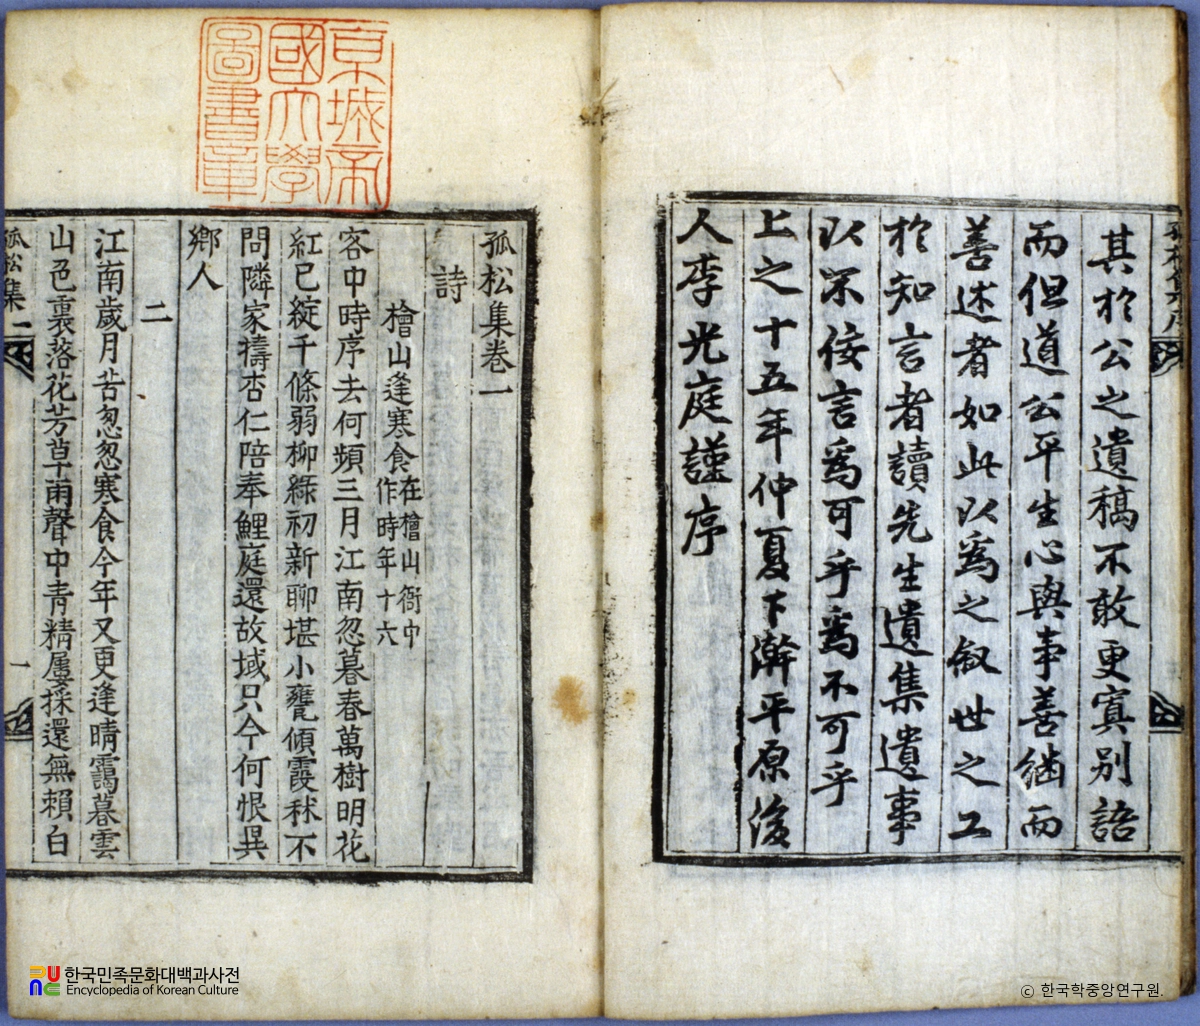 其於公之遺稿不敢更寘別語
而但道公平生心與事善繼而
善述者如此以爲之敍世之工
於知言者讀先生遺集遺事
以不佞言爲可乎爲不可乎
上之十五年仲夏下澣平原後
人李光庭謹序
京城帝
國大學
圖書章
孤松集卷一
詩
檜山逢寒食在檜山衙中
作時年十六
客中時序去何頻三月江南忽暮春萬樹明花
紅已綻千條弱柳綠初新聊堪小甕傾霞秫不
問隣家擣杏仁陪奉鯉庭還故域只今何恨異
鄉人
二
江南歲月苦悤悤寒食今年又更逢晴靄暮雲
山色裏落花芳草雨聲中青精屢採還無賴白
孤松集
一
한국민족문화대백과사전
Encyclopedia of Korean Culture
ⓒ 한국학중앙연구원.